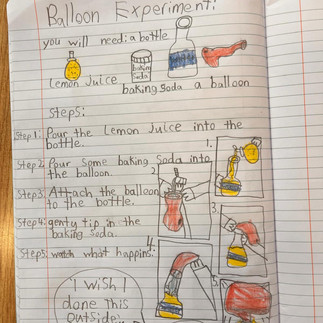 Balloon Experiment:
you will need: a bottle
Lemon Juice
baking soda
baking soda a balloon
Steps:
Step 1: Pour the Lemon Juice into the bottle.
Step 2: Pour some baking soda into the balloon.
Step 3: Attach the balloon to the bottle.
Step 4: genty tip in the baking soda.
Step 5: watch what happins.
1.
2.
3.
4.
5.
"I wish I
done this
outside."